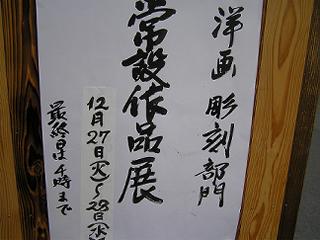 洋画 彫刻部門
常設作品展
12月27日(火)~28日(水)
最終日は4時まで